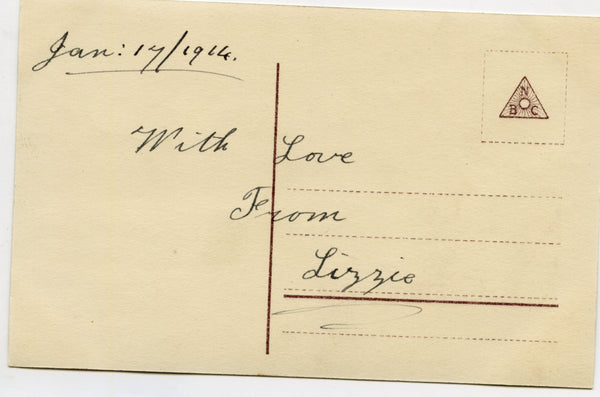 Jan: 17/1914.
N
B C
With Love
From
Lizzie